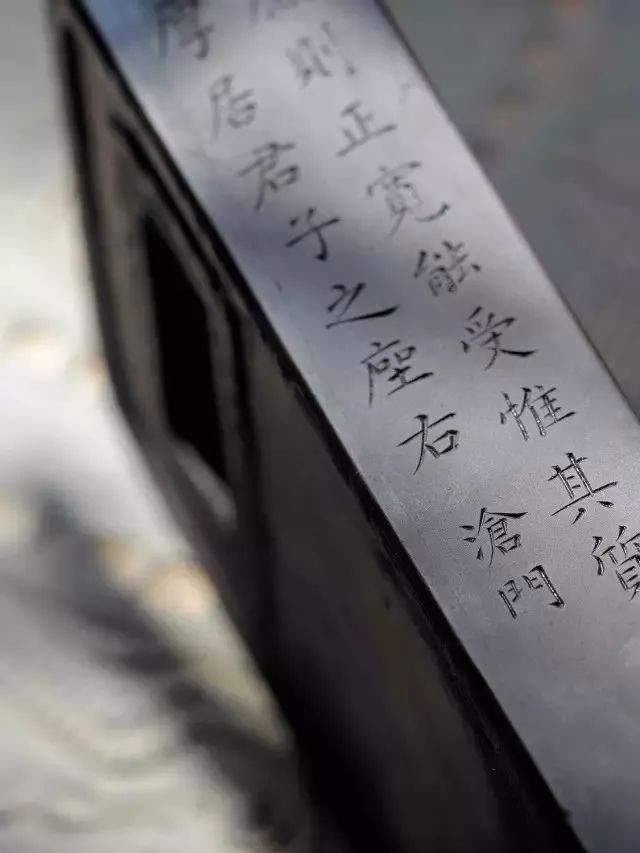 則正寬能受惟其質
厚居君子之座右 滄門